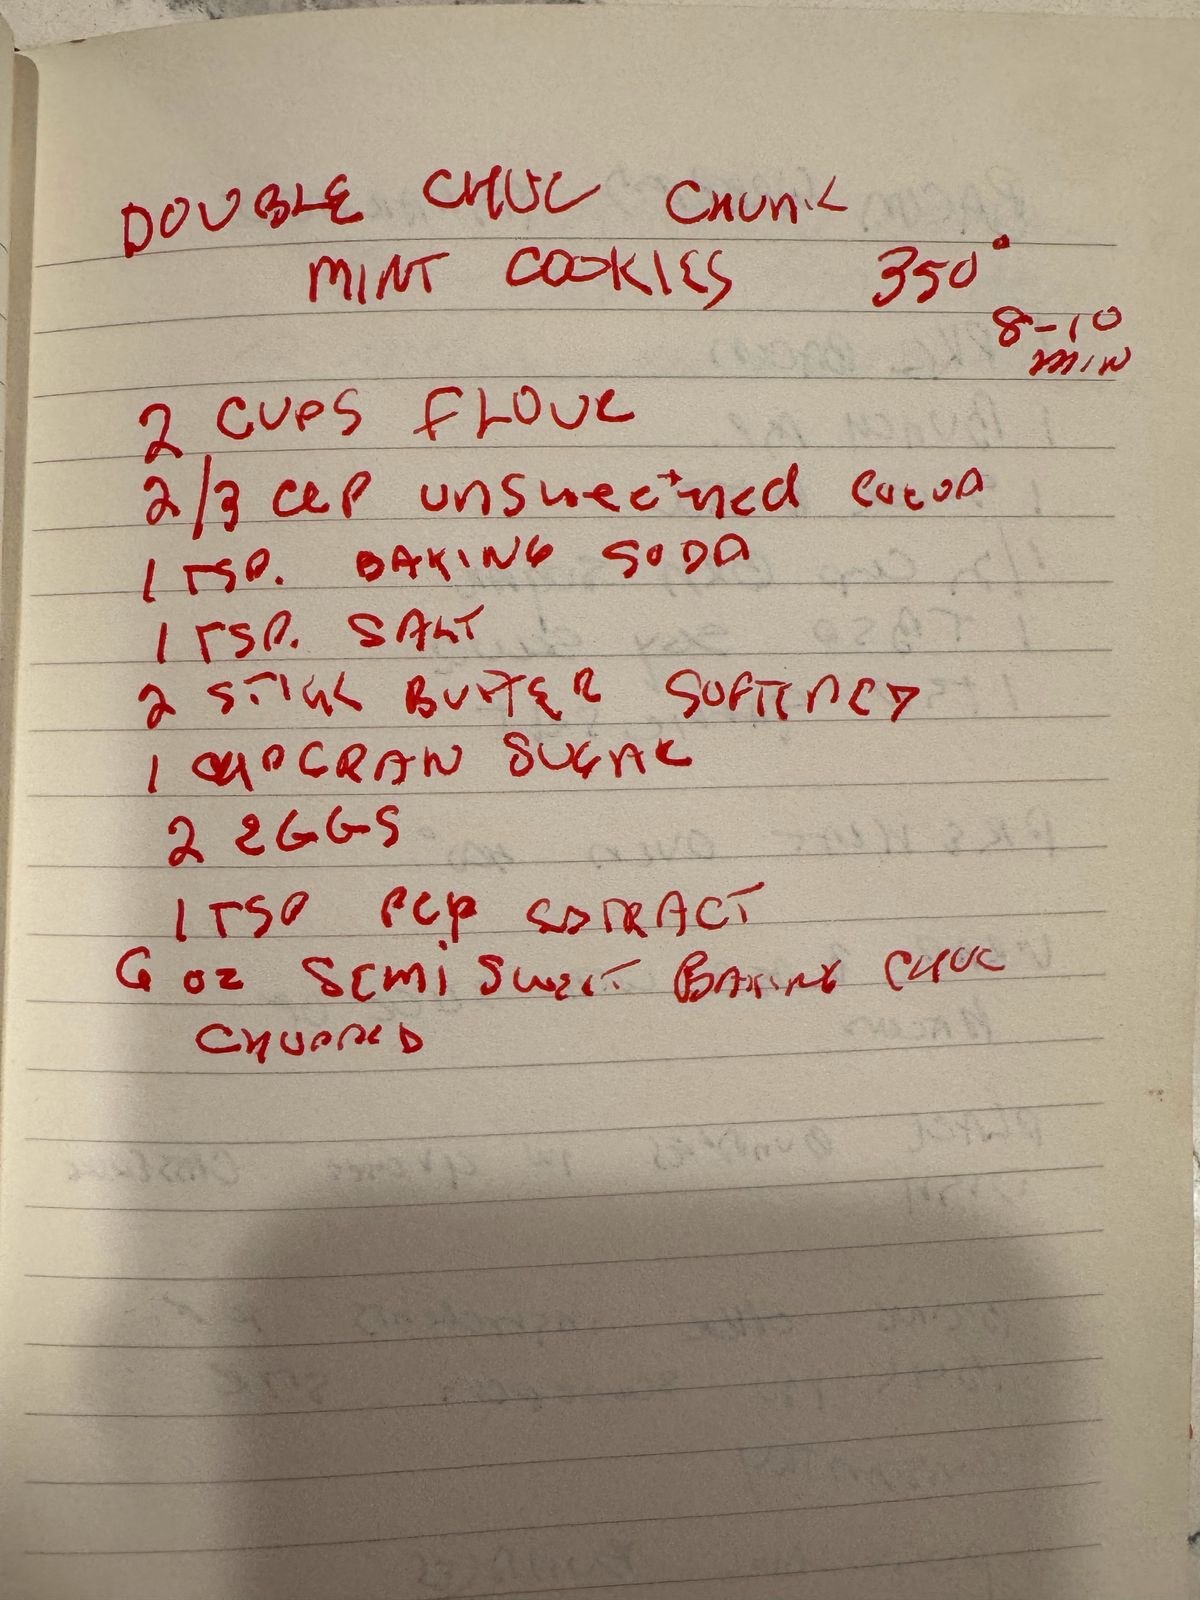 DOUBLE CHOC CHUNK
MINT COOKIES 350°
8-10
MIN
2 CUPS FLOUR
2/3 CUP unsweetened COCOA
1 TSP. BAKING SODA
1 TSP. SALT
2 STICK BUTTER SOFTENED
1 CUP GRAN SUGAR
2 EGGS
1 TSP PEP EXTRACT
6 oz SEMI SWEET BAKING CHOC
CHOPPED